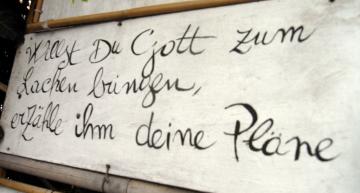 Willst Du Gott zum
Lachen bringen,
erzähle ihm deine Pläne